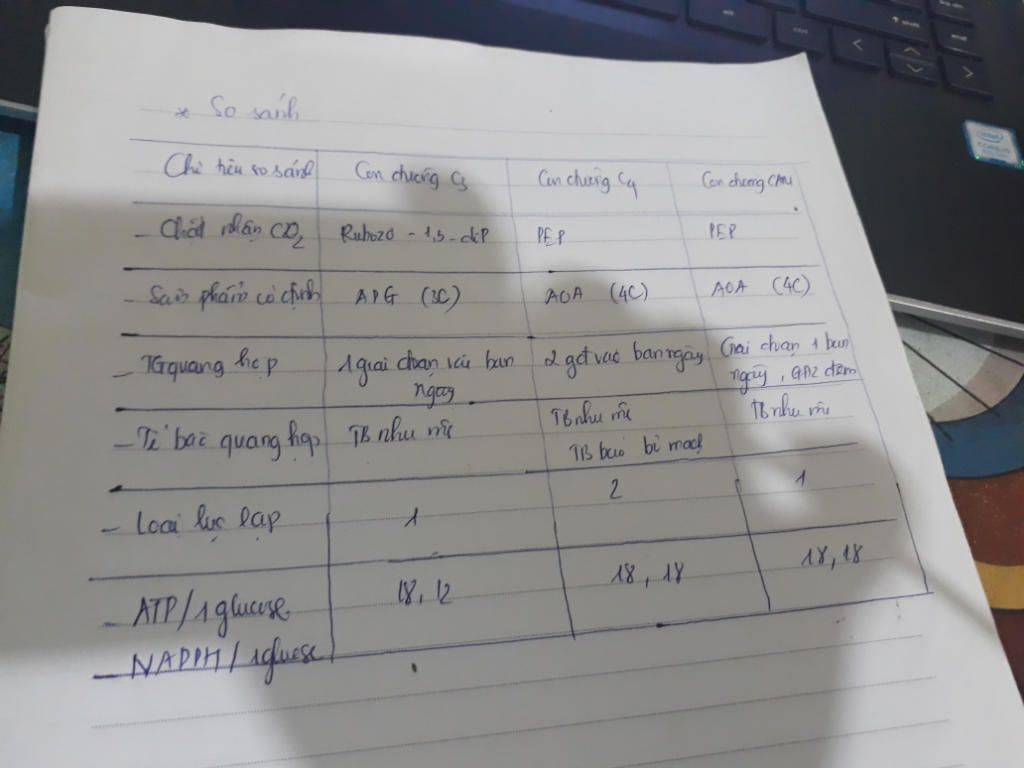 * So sánh
Chỉ tiêu so sánh Con đường C3 Con đường C4 Con đường CAM
- Chất nhận CO2 Ribozo - 1,5-diP PEP PEP
- Sản phẩm cố định APG (3C) AOA (4C) AOA (4C)
- TG quang hợp 1 giai đoạn vào ban 2 gđ vào ban ngày Giai đoạn 1 ban
ngày ngày, GĐ2 đêm
- Tế bào quang hợp TB nhu mô TB nhu mô TB nhu mô
TB bao bì mạch
- Loại lục lạp 1 2 1
- ATP/1glucose 18, 12 18, 18 18, 18
- NAPPH/1glucose
intel
CORE i5